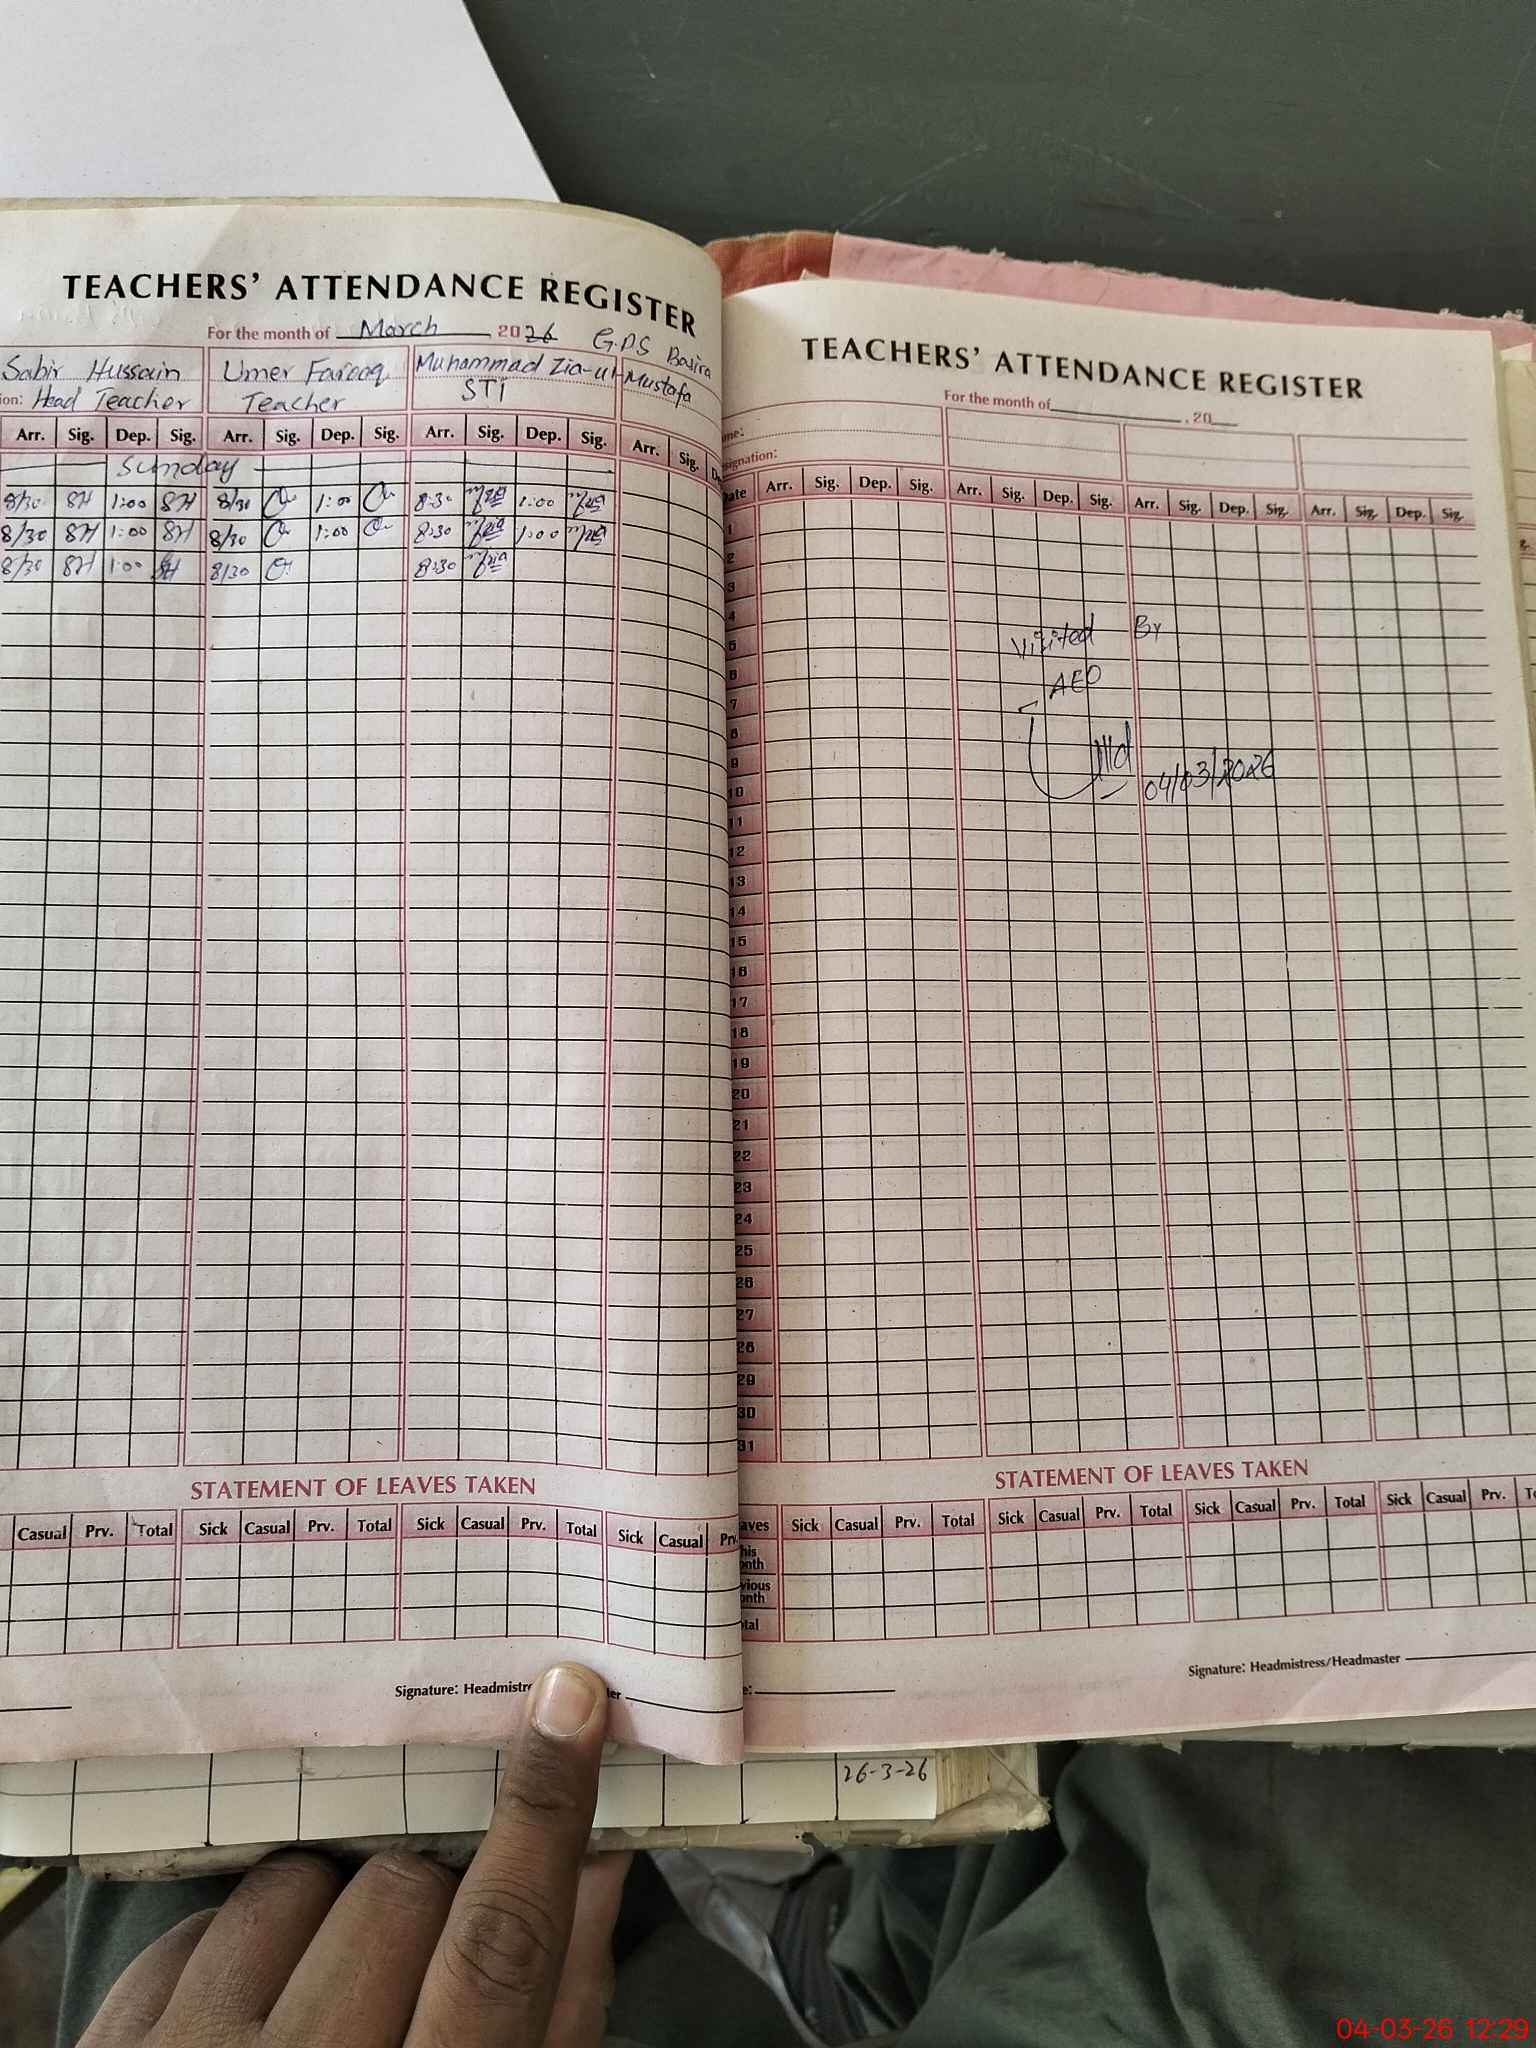 TEACHERS' ATTENDANCE REGISTER
For the month of March 2026 G.P.S Basira
Sabir Hussain Umer Farooq Muhammad Zia-ul-Mustafa
ion: Head Teacher Teacher STI
Arr. Sig. Dep. Sig. Arr. Sig. Dep. Sig. Arr. Sig. Dep. Sig. Arr. Sig. D
Sunday
8/30 SH 1:00 SH 8/30 1:00 8:30 1:00
8/30 SH 1:00 SH 8/30 1:00 8:30 1:00
8/30 SH 1:00 SH 8/30 8:30
STATEMENT OF LEAVES TAKEN
Casual Prv. Total Sick Casual Prv. Total Sick Casual Prv. Total Sick Casual Prv.
Signature: Headmistre ter
TEACHERS' ATTENDANCE REGISTER
For the month of , 20
me:
signation:
Date Arr. Sig. Dep. Sig. Arr. Sig. Dep. Sig. Arr. Sig. Dep. Sig. Arr. Sig. Dep. Sig.
1
2
3
4
5
6
7
8
9
10
11
12
13
14
15
16
17
18
19
20
21
22
23
24
25
26
27
28
29
30
31
Visited By
AEO
04/03/2026
STATEMENT OF LEAVES TAKEN
aves Sick Casual Prv. Total Sick Casual Prv. Total Sick Casual Prv. Total Sick Casual Prv. T
his
onth
vious
onth
tal
Signature: Headmistress/Headmaster
e:
26-3-26
04-03-26 12:29